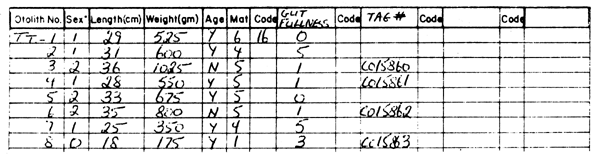 Otolith No. Sex* Length(cm) Weight(gm) Age Mat Code GUT FULLNESS Code TAG # Code Code Code
TT-1 1 29 525 Y 6 16 0
2 1 31 600 Y 4 5
3 2 36 1025 N 5 1 C015860
4 1 28 550 Y 5 1 C015861
5 2 33 675 Y 5 0
6 2 35 800 N 5 1 C015862
7 1 25 350 Y 4 5
8 0 18 175 Y 1 3 C015863